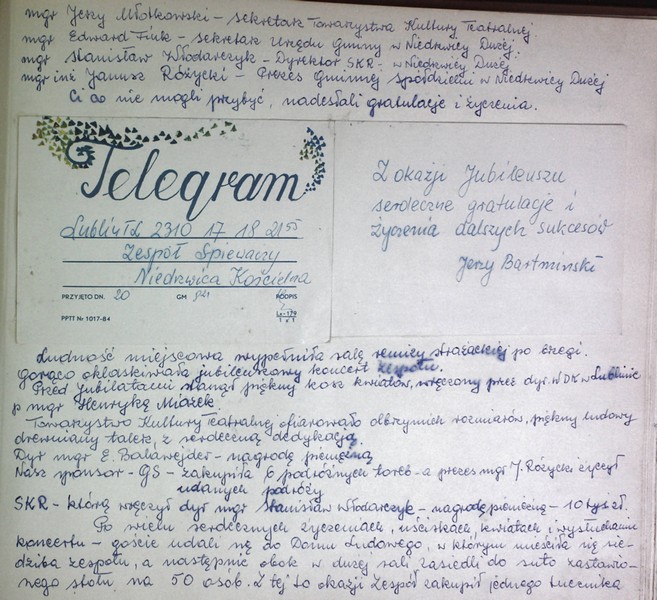 mgr Jerzy Młotkowski - sekretarz Towarzystwa Kultury Teatralnej
mgr Edward Fiuk - sekretarz Urzędu Gminy w Niedrzwicy Dużej.
mgr Stanisław Włodarczyk - Dyrektor SKR - w Niedrzwicy Dużej
mgr inż Janusz Różycki - Prezes Gminnej Spółdzielni w Niedrzwicy Dużej
Ci co nie mogli przybyć, nadesłali gratulacje i życzenia.
Telegram
Lublin 2310 17 18 21 55
Zespół Śpiewaczy
Niedrzwica Kościelna
PRZYJĘTO DN. 20 GM PODPIS
PPTT Nr 1017-84 Lx-179
1 x 1
Z okazji Jubileuszu
serdeczne gratulacje i
życzenia dalszych sukcesów
Jerzy Bartmiński
Ludność miejscowa wypełniła salę remizy strażackiej po brzegi.
gorąco oklaskiwała jubileuszowy koncert zespołu.
Przed Jubilatami stanął piękny kosz kwiatów, wręczony przez dyr. WDK w Lublinie
p mgr Henrykę Miazek.
Towarzystwo Kultury Teatralnej ofiarowało olbrzymich rozmiarów, piękny ludowy
drewniany talerz, z serdeczną dedykacją.
Dyr mgr E. Balawejder - nagrodę pieniężną
Nasz sponsor - GS - zakupiła 6 podróżnych toreb - a prezes mgr J. Różycki życzył
udanych podróży
SKR - którą wręczył dyr mgr Stanisław Włodarczyk - nagrodę pieniężną - 10 tys zł.
Po wielu serdecznych życzeniach, uściskach, kwiatach i wysłuchaniu
koncertu - goście udali się do Domu Ludowego, w którym mieściła się sie-
dziba zespołu, a następnie obok w dużej sali zasiedli do suto zastawio-
nego stołu na 50 osób. Z tej to okazji Zespół zakupił jednego tucznika